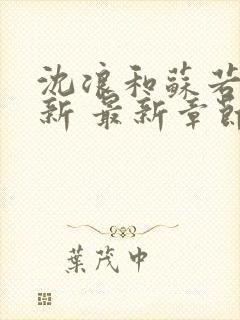 沈浪和蘇若
新 最新章節
葉茂中